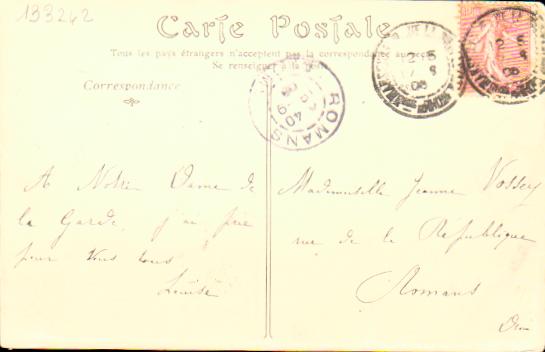 133242
Carte Postale
Tous les pays étrangers n'acceptent pas la correspondance au recto
Se renseigner à la Poste
Correspondance
ROMANS
A Notre Dame de
la Garde, j'ai prié
pour vous tous
Louise
Mademoiselle Jeanne Vossey
rue de la République
Romans